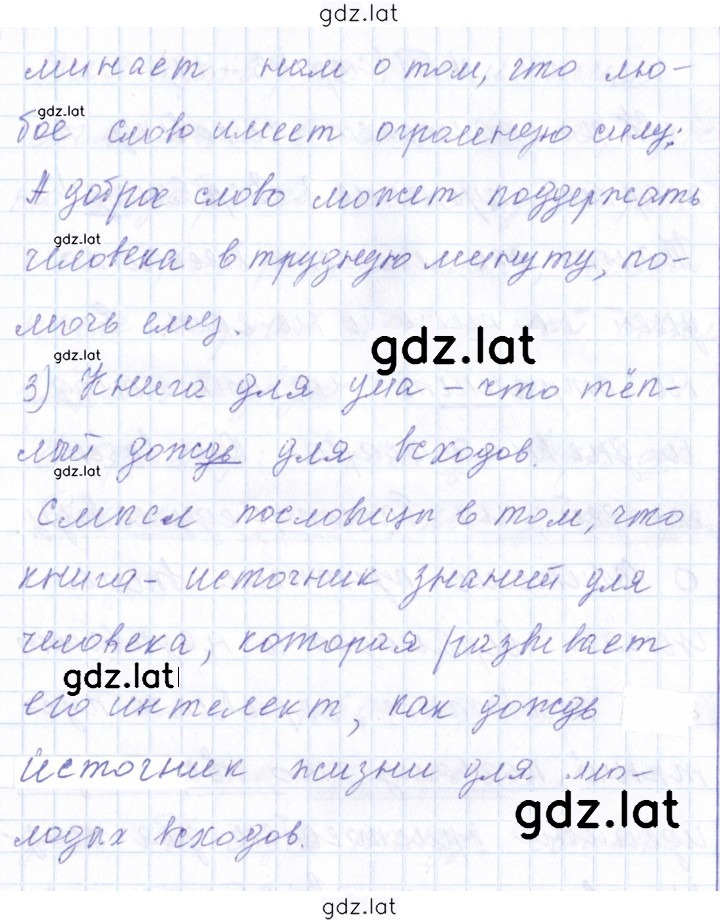 gdz.lat
минает нам о том, что лю-
gdz.lat
бое слово имеет огромную силу.
А доброе слово может поддержать
gdz.lat
человека в трудную минуту, по-
мочь ему.
gdz.lat
gdz.lat
3) Книга для ума – что тёп-
лый дождь для всходов.
gdz.lat
Смысл пословицы в том, что
книга – источник знаний для
человека, которая развивает
gdz.lat
его интелект, как дождь
источник жизни для мо-
gdz.lat
лодых всходов.
gdz.lat